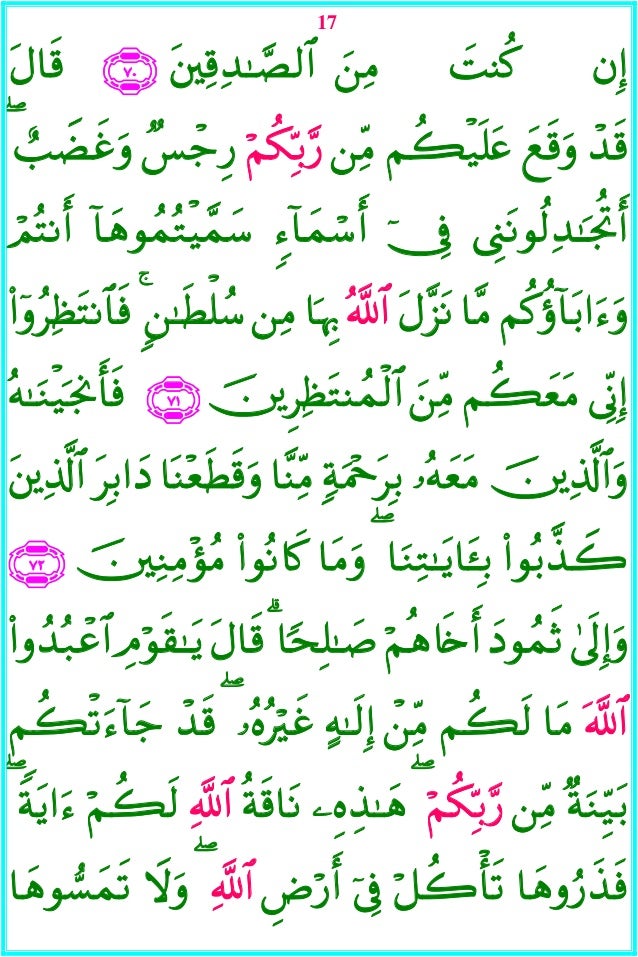 17
إِن كُنتَ مِنَ ٱلصَّـٰدِقِينَ ٧٠ قَالَ
قَدْ وَقَعَ عَلَيْكُم مِّن رَّبِّكُمْ رِجْسٌ وَغَضَبٌ ۖ
أَتُجَـٰدِلُونَنِى فِىٓ أَسْمَآءٍ سَمَّيْتُمُوهَآ أَنتُمْ
وَءَابَآؤُكُم مَّا نَزَّلَ ٱللَّهُ بِهَا مِن سُلْطَـٰنٍ ۚ فَٱنتَظِرُوٓا۟
إِنِّى مَعَكُم مِّنَ ٱلْمُنتَظِرِينَ ٧١ فَأَنجَيْنَـٰهُ
وَٱلَّذِينَ مَعَهُۥ بِرَحْمَةٍ مِّنَّا وَقَطَعْنَا دَابِرَ ٱلَّذِينَ
كَذَّبُوا۟ بِـَٔايَـٰتِنَا ۖ وَمَا كَانُوا۟ مُؤْمِنِينَ ٧٢
وَإِلَىٰ ثَمُودَ أَخَاهُمْ صَـٰلِحًا ۗ قَالَ يَـٰقَوْمِ ٱعْبُدُوا۟
ٱللَّهَ مَا لَكُم مِّنْ إِلَـٰهٍ غَيْرُهُۥ ۖ قَدْ جَآءَتْكُم
بَيِّنَةٌ مِّن رَّبِّكُمْ ۖ هَـٰذِهِۦ نَاقَةُ ٱللَّهِ لَكُمْ ءَايَةً ۖ
فَذَرُوهَا تَأْكُلْ فِىٓ أَرْضِ ٱللَّهِ ۖ وَلَا تَمَسُّوهَا